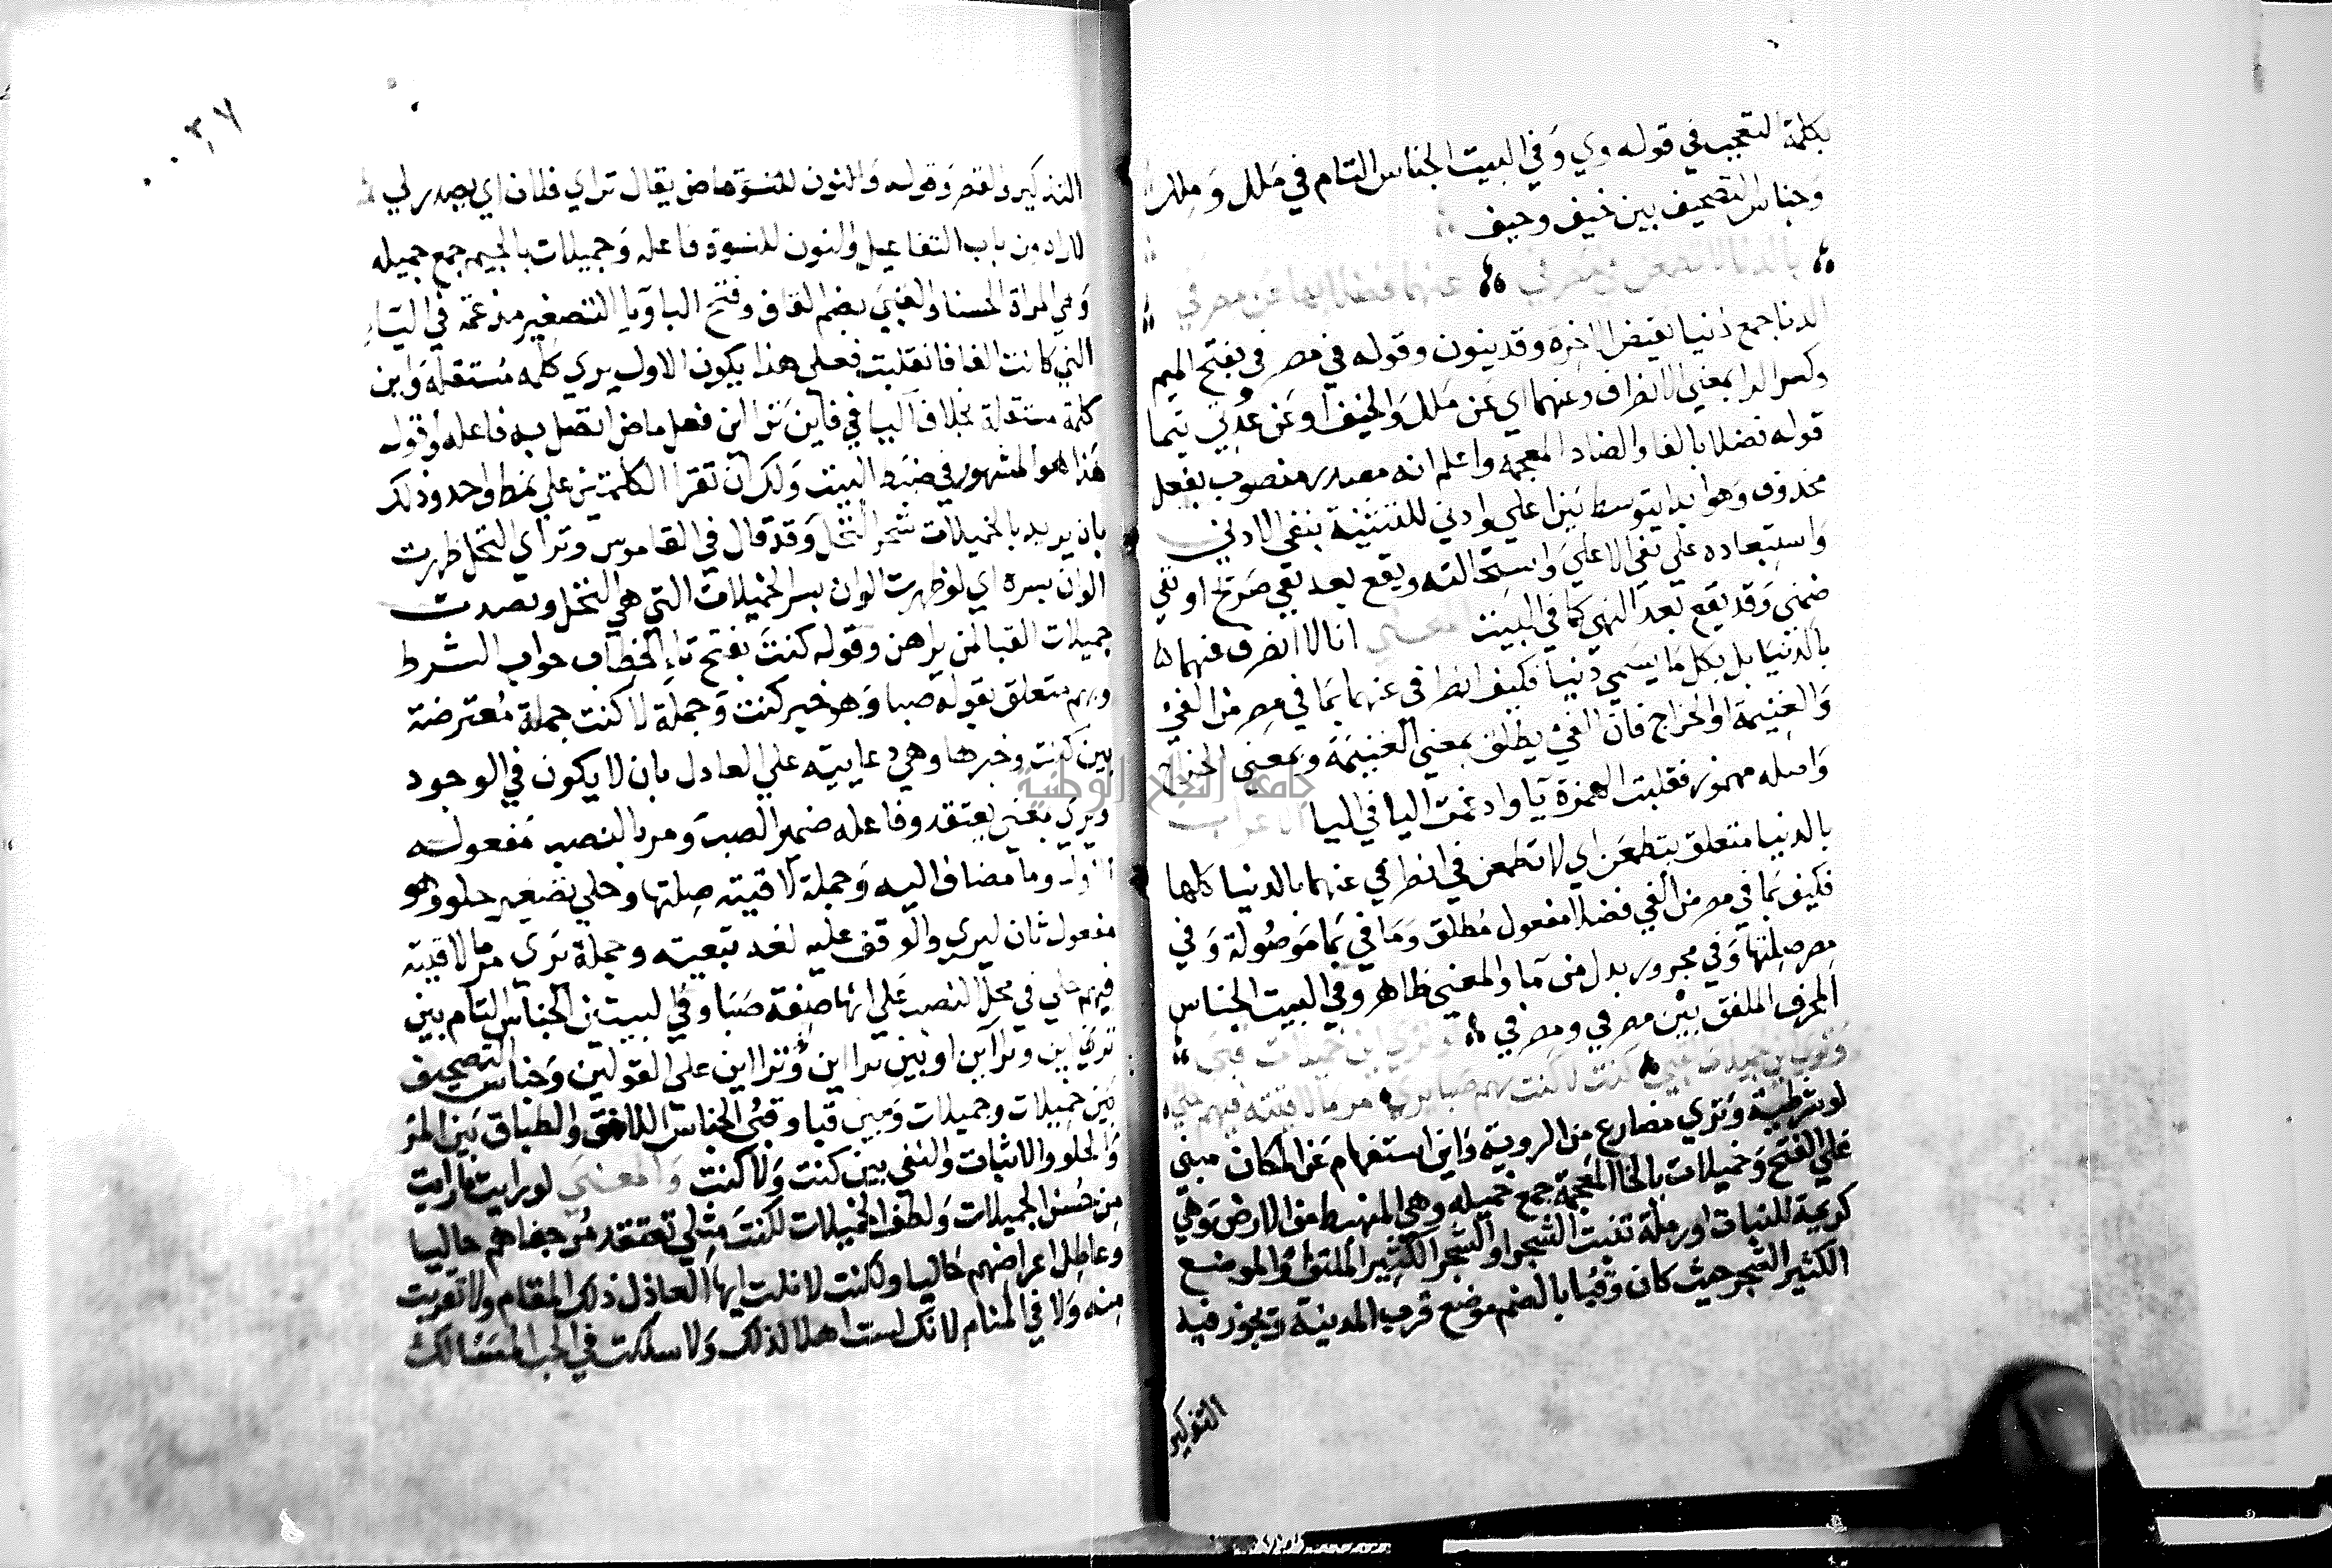 بكلمة التعجب في قوله وي وفي البيت الجناس التام في ملل وملل
وجناس التصحيف بين خيف وحيف
الدنا جمع دنيا نقيض الاخرة وقد ينون وقوله في مصر في بفتح الميم
وكسر الرا بمعني الانصراف وعنهما اي عن ملل والخيف او عن عدني تيما
قوله فضلا بالفا والضاد المعجمة واعلم انه مصدر منصوب بفعل
محذوف وهو ابدا يتوسط بين اعلي وادني للتنبيه بنفي الادني
واستبعاده علي نفي الاعلي واستحالته ويقع بعد نفي صريح او نفي
ضمني وقد يقع بعد النهي كما في البيت المعني انا لا انصرف عنهما
بالدنيا بل بكل ما يسمي دنيا فكيف انصرافي عنهما بما في مصر من الفي
والغنيمة او الخراج فان الفي يطلق بمعني الغنيمة وبمعني الخراج
واصله مهموز فقلبت الهمزة يا وادغمت اليا في اليا الاعراب
بالدنيا متعلق بتطمعن اي لا تطمعن في انصرافي عنهما بالدنيا كلها
فكيف بما في مصر من الفي فضلا مفعول مطلق وما في بما موصولة وفي
مصر صلتها وفي مجرور بدل من ما والمعني ظاهر وفي البيت الجناس
المحرف الملفق بين مصر في ومصر في
لو شرطية وتري مضارع من الروية واين استفهام عن المكان مبني
علي الفتح وخميلات بالخا المعجمة جمع خميله وهي المنهبط من الارض وهي
كريمة للنبات او رملة تنبت الشجر او الشجر الكثير الملتف والموضع
الكثير الشجر حيث كان وقبا بالضم موضع قرب المدينة ويجوز فيه
التذكير
٠٠٢٧
التذكير والقصر وقوله والنون للنسوة ماض يقال تراي فلان اي يصدر لي
لاراه من باب التفاعيل والنون للنسوة فاعله وجميلات بالجيم جمع جميله
وهي المراة الحسنا والقبي بضم القاف وفتح البا ويا التصغير مدغمة في الياء
التي كانت الفا فانقلبت فعلي هذا يكون الاول يري كلمه مستقلة واين
كلمة مستقلة بخلاف الثاني فاين تراين فعل ماض اتصل به فاعله وقوله
هذا هو المشهور في ضبط البيت ولك ان تقرا الكلمتين علي نمط واحد وذلك
بان يريد بالخميلات شجر النخل وقد قال في القاموس وتراي النخل ظهرت
الوان بسره اي لو ظهرت الوان بسر الخميلات التي هي النخل وتصدت
جميلات القبا لمن يراهن وقوله كنت بفتح تاء الخطاب جواب الشرط
وبهم متعلق بقوله صبا وهو خبر كنت وجملة لا كنت جملة معترضة
بين كنت وخبرها وهي دعاييه علي العادل بان لا يكون في الوجود
ويري بمعني يعتقد وفاعله ضمير الصب ومر بالنصب مفعوله
الاول وما مضاف اليه وجملة لاقيته صلتها وحلي تصغير حلو وهو
مفعول ثان ليري والوقف عليه لغد تبعيته وجملة يري مر ما لاقيته
فيهم حلي في محل النصب علي انها صفة صبا وفي البيت من الجناس التام بين
تري اين وتراين او بين تراين وتراين علي القولين وجناس التصحيف
بين خميلات وجميلات وبين قبا وقبي الجناس اللاحق والطباق بين المر
والحلو والاثبات والنفي بين كنت ولا كنت والمعني لو رايت ما رايت
من حسن الجميلات ولطف الخميلات لكنت مثلي تعتقد مر جفاهم حاليا
وعاطل اعراضهم حاليا ولكنت لا نلت ايها العاذل ذلك المقام ولا تقربت
منه ولا في المنام لانك لست اهلا لذلك ولا سلكت في الحب المسالك
جامعة النجاح الوطنية